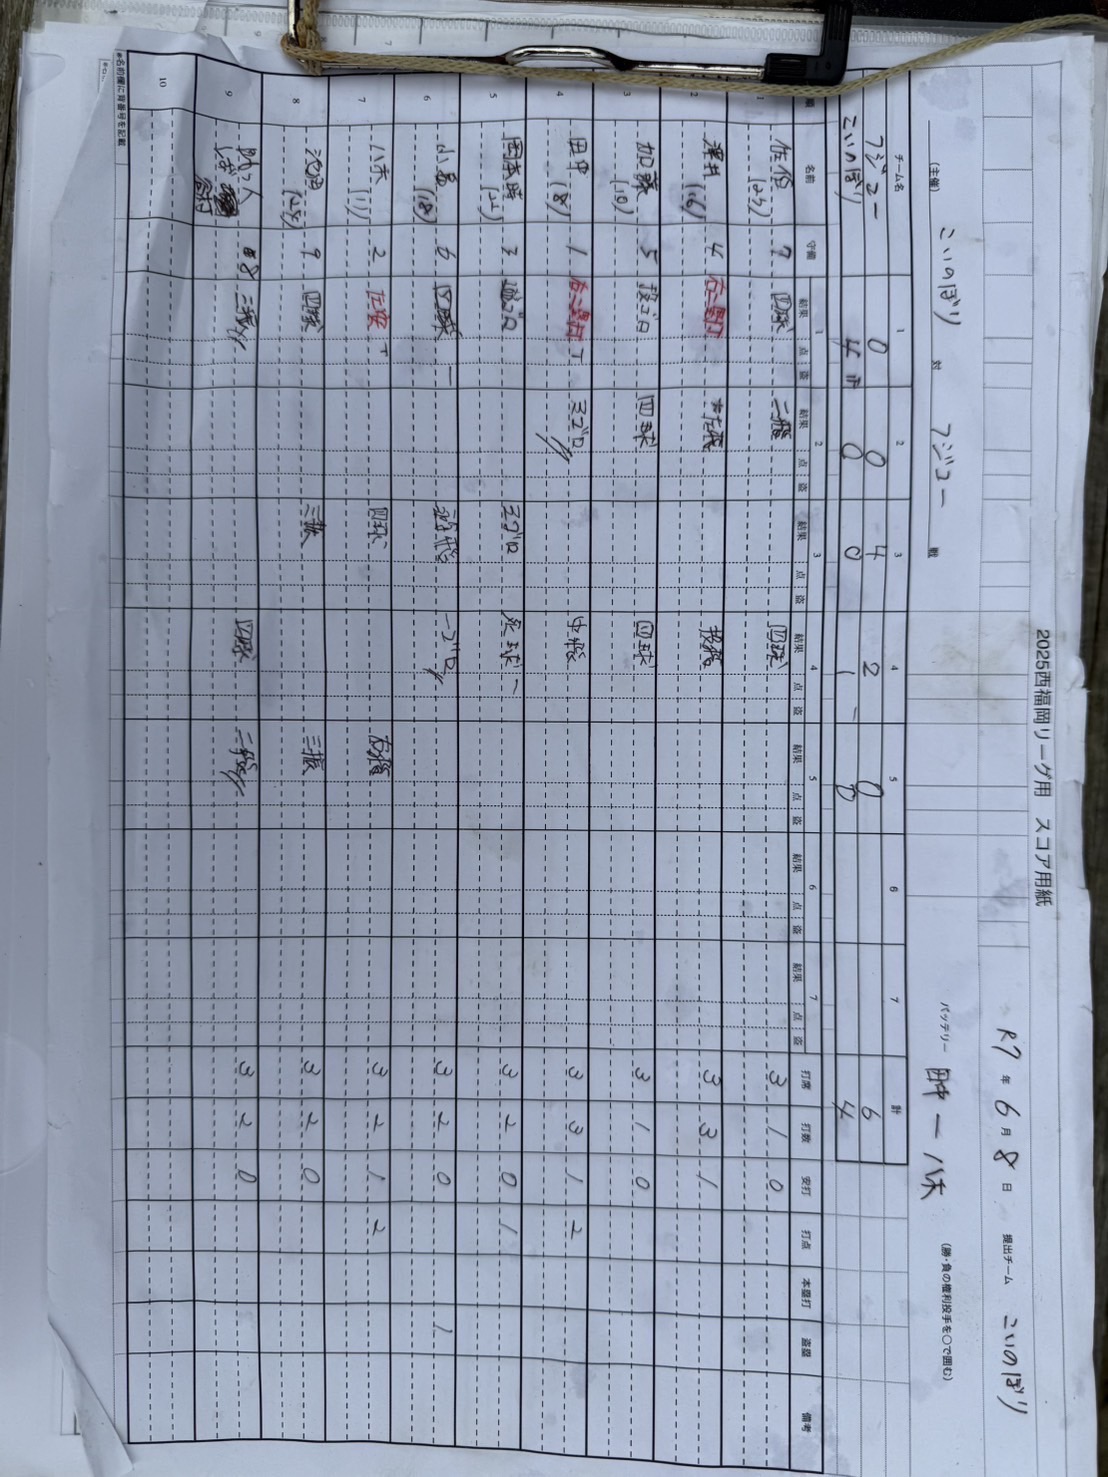 2025西福岡リーグ用 スコア用紙
R7 年 6 月 8 日 提出チーム こいのぼり
(主催) こいのぼり 対 フジコー 戦 バッテリー 田中 ー 八木 (勝・負の権利投手を○で囲む)
チーム名 1 2 3 4 5 6 7 計
フジコー 0 0 4 2 0 6
こいのぼり 4 0 0 1 0 4
名前 守備 1 結果 点 盗 2 結果 点 盗 3 結果 点 盗 4 結果 点 盗 5 結果 点 盗 6 結果 点 盗 7 結果 点 盗 打席 打数 安打 打点 本塁打 盗塁 備考
1 佐伯 (23) 7 四球 二飛 四球 3 1 0
2 澤井 (16) 4 右二塁打 左飛 投飛 3 3 1
3 加藤 (10) 5 投ゴロ 四球 四球 3 1 0
4 田中 (8) 1 右二塁打 T 三ゴロ 中飛 3 3 1 2
5 岡本時 (21) 3 遊ゴロ 三ゴロ 死球 3 2 0 1
6 小島 (18) 6 四球 一 遊飛 一ゴロ 3 2 0 1
7 八木 (1) 2 左安 T 四球 右飛 3 2 1 2
8 池田 (25) 9 四球 三振 三振 3 2 0
9 助っ人 8 三振 四球 二飛 3 2 0
10
※名前欄に背番号を記載